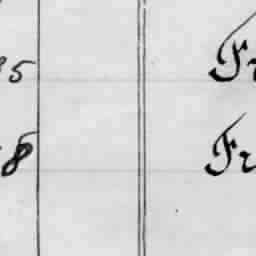 5 Fr
8 Fr